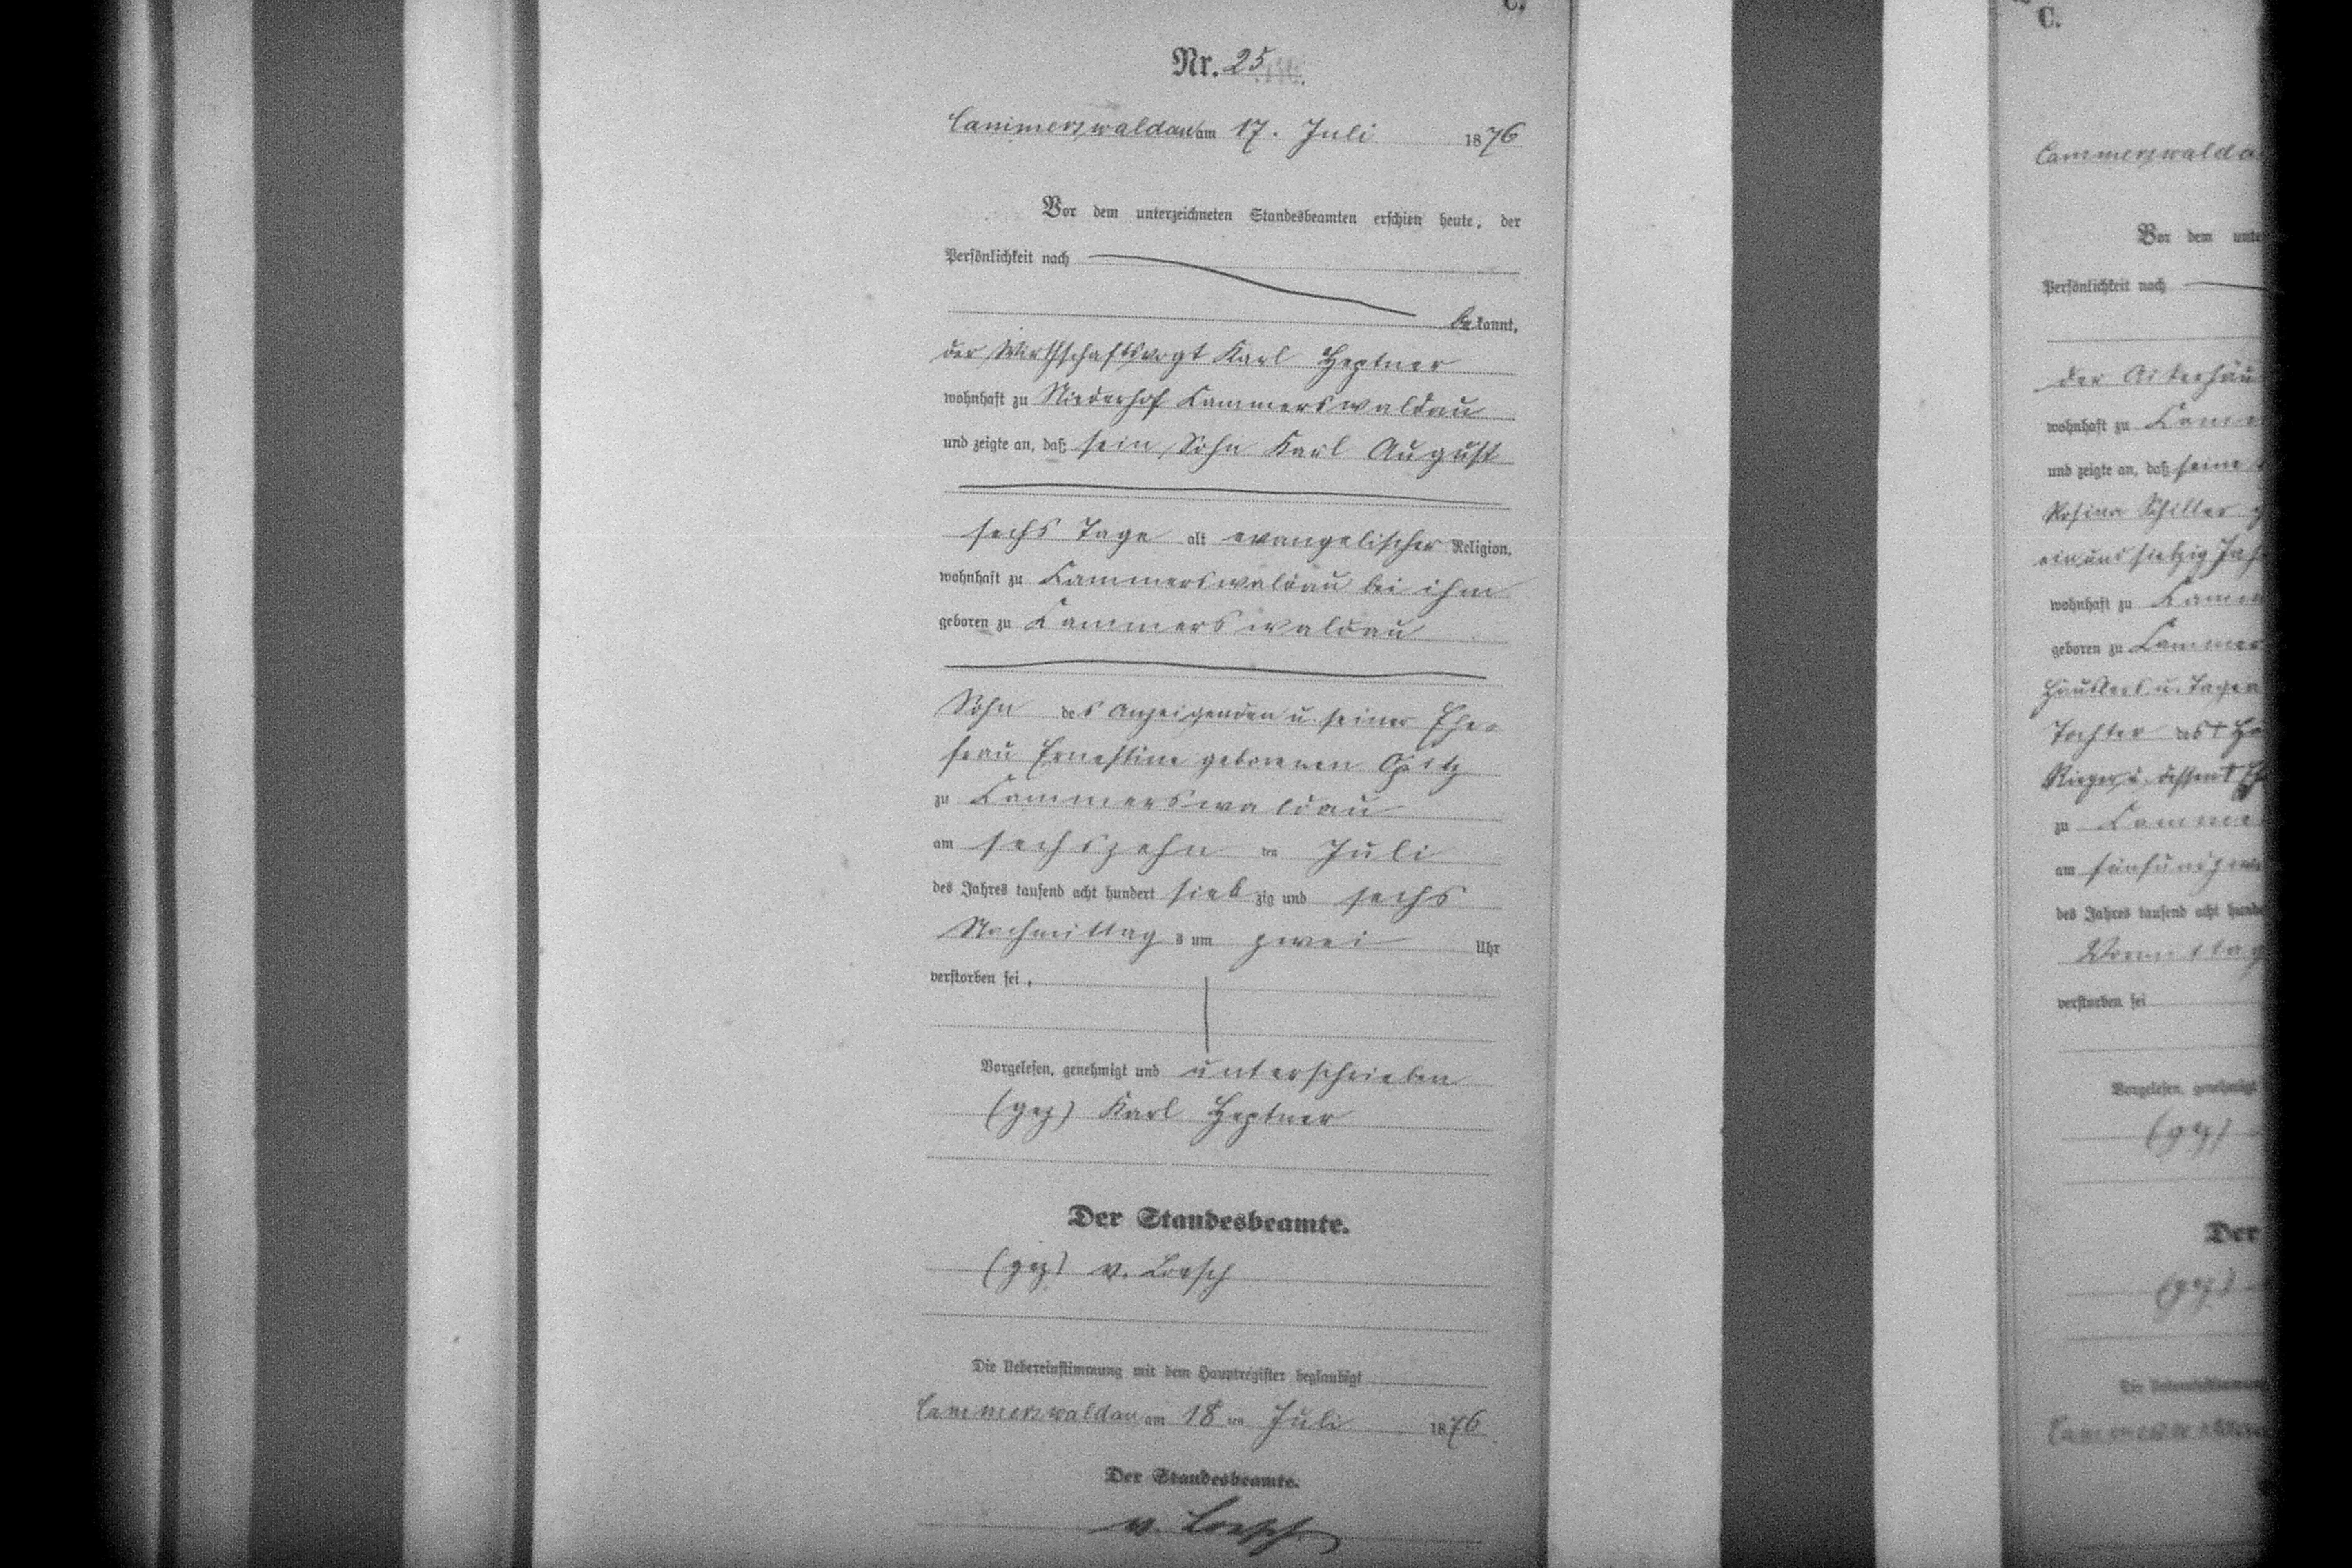 C.
Nr. 25
Cammerswaldau am 17. Juli 1876
Vor dem unterzeichneten Standesbeamten erschien heute, der
Persönlichkeit nach
be kannt,
der Wirthschaftsvogt Karl Heptner
wohnhaft zu Niederhof Kammerswaldau
und zeigte an, daß sein Sohn Karl August
sechs Tage alt evangelischer Religion,
wohnhaft zu Kammerswaldau bei ihm
geboren zu Kammerswaldau
Sohn des Anzeigenden u. seiner Ehe-
frau Ernestine geborenen Opitz
zu Kammerswaldau
am sechszehn ten Juli
des Jahres tausend acht hundert sieb zig und sechs
Nachmittag s um zwei Uhr
verstorben sei.
Vorgelesen, genehmigt und unterschrieben
(gez) Karl Heptner
Der Standesbeamte.
(gez) v. Loesch
Die Uebereinstimmung mit dem Hauptregister beglaubigt
Cammerswaldau am 18 ten Juli 1876
Der Standesbeamte.
v. Loesch
C.
Cammerswalda
Vor dem unte
Persönlichkeit nach
der
wohnhaft zu Kamm
und zeigte an, daß seine
Rosina Schiller
ein und siebzig Jah
wohnhaft zu Kamm
geboren zu Kammer
Häuslers u. Tage
Tochter des †
Rieger u. dessen †
zu Kamme
am fünfundzwa
des Jahres tausend acht hunde
Vormittag
verstorben sei
Vorgelesen, genehmigt
(gez)
Der
(gez)